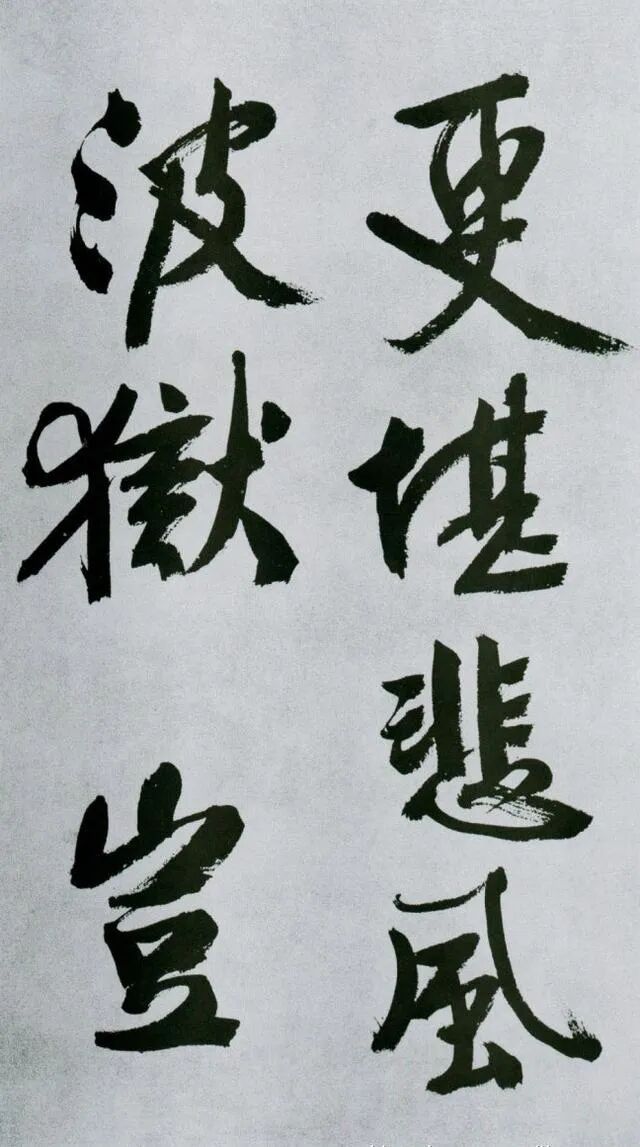 更堪悲風
波獄豈